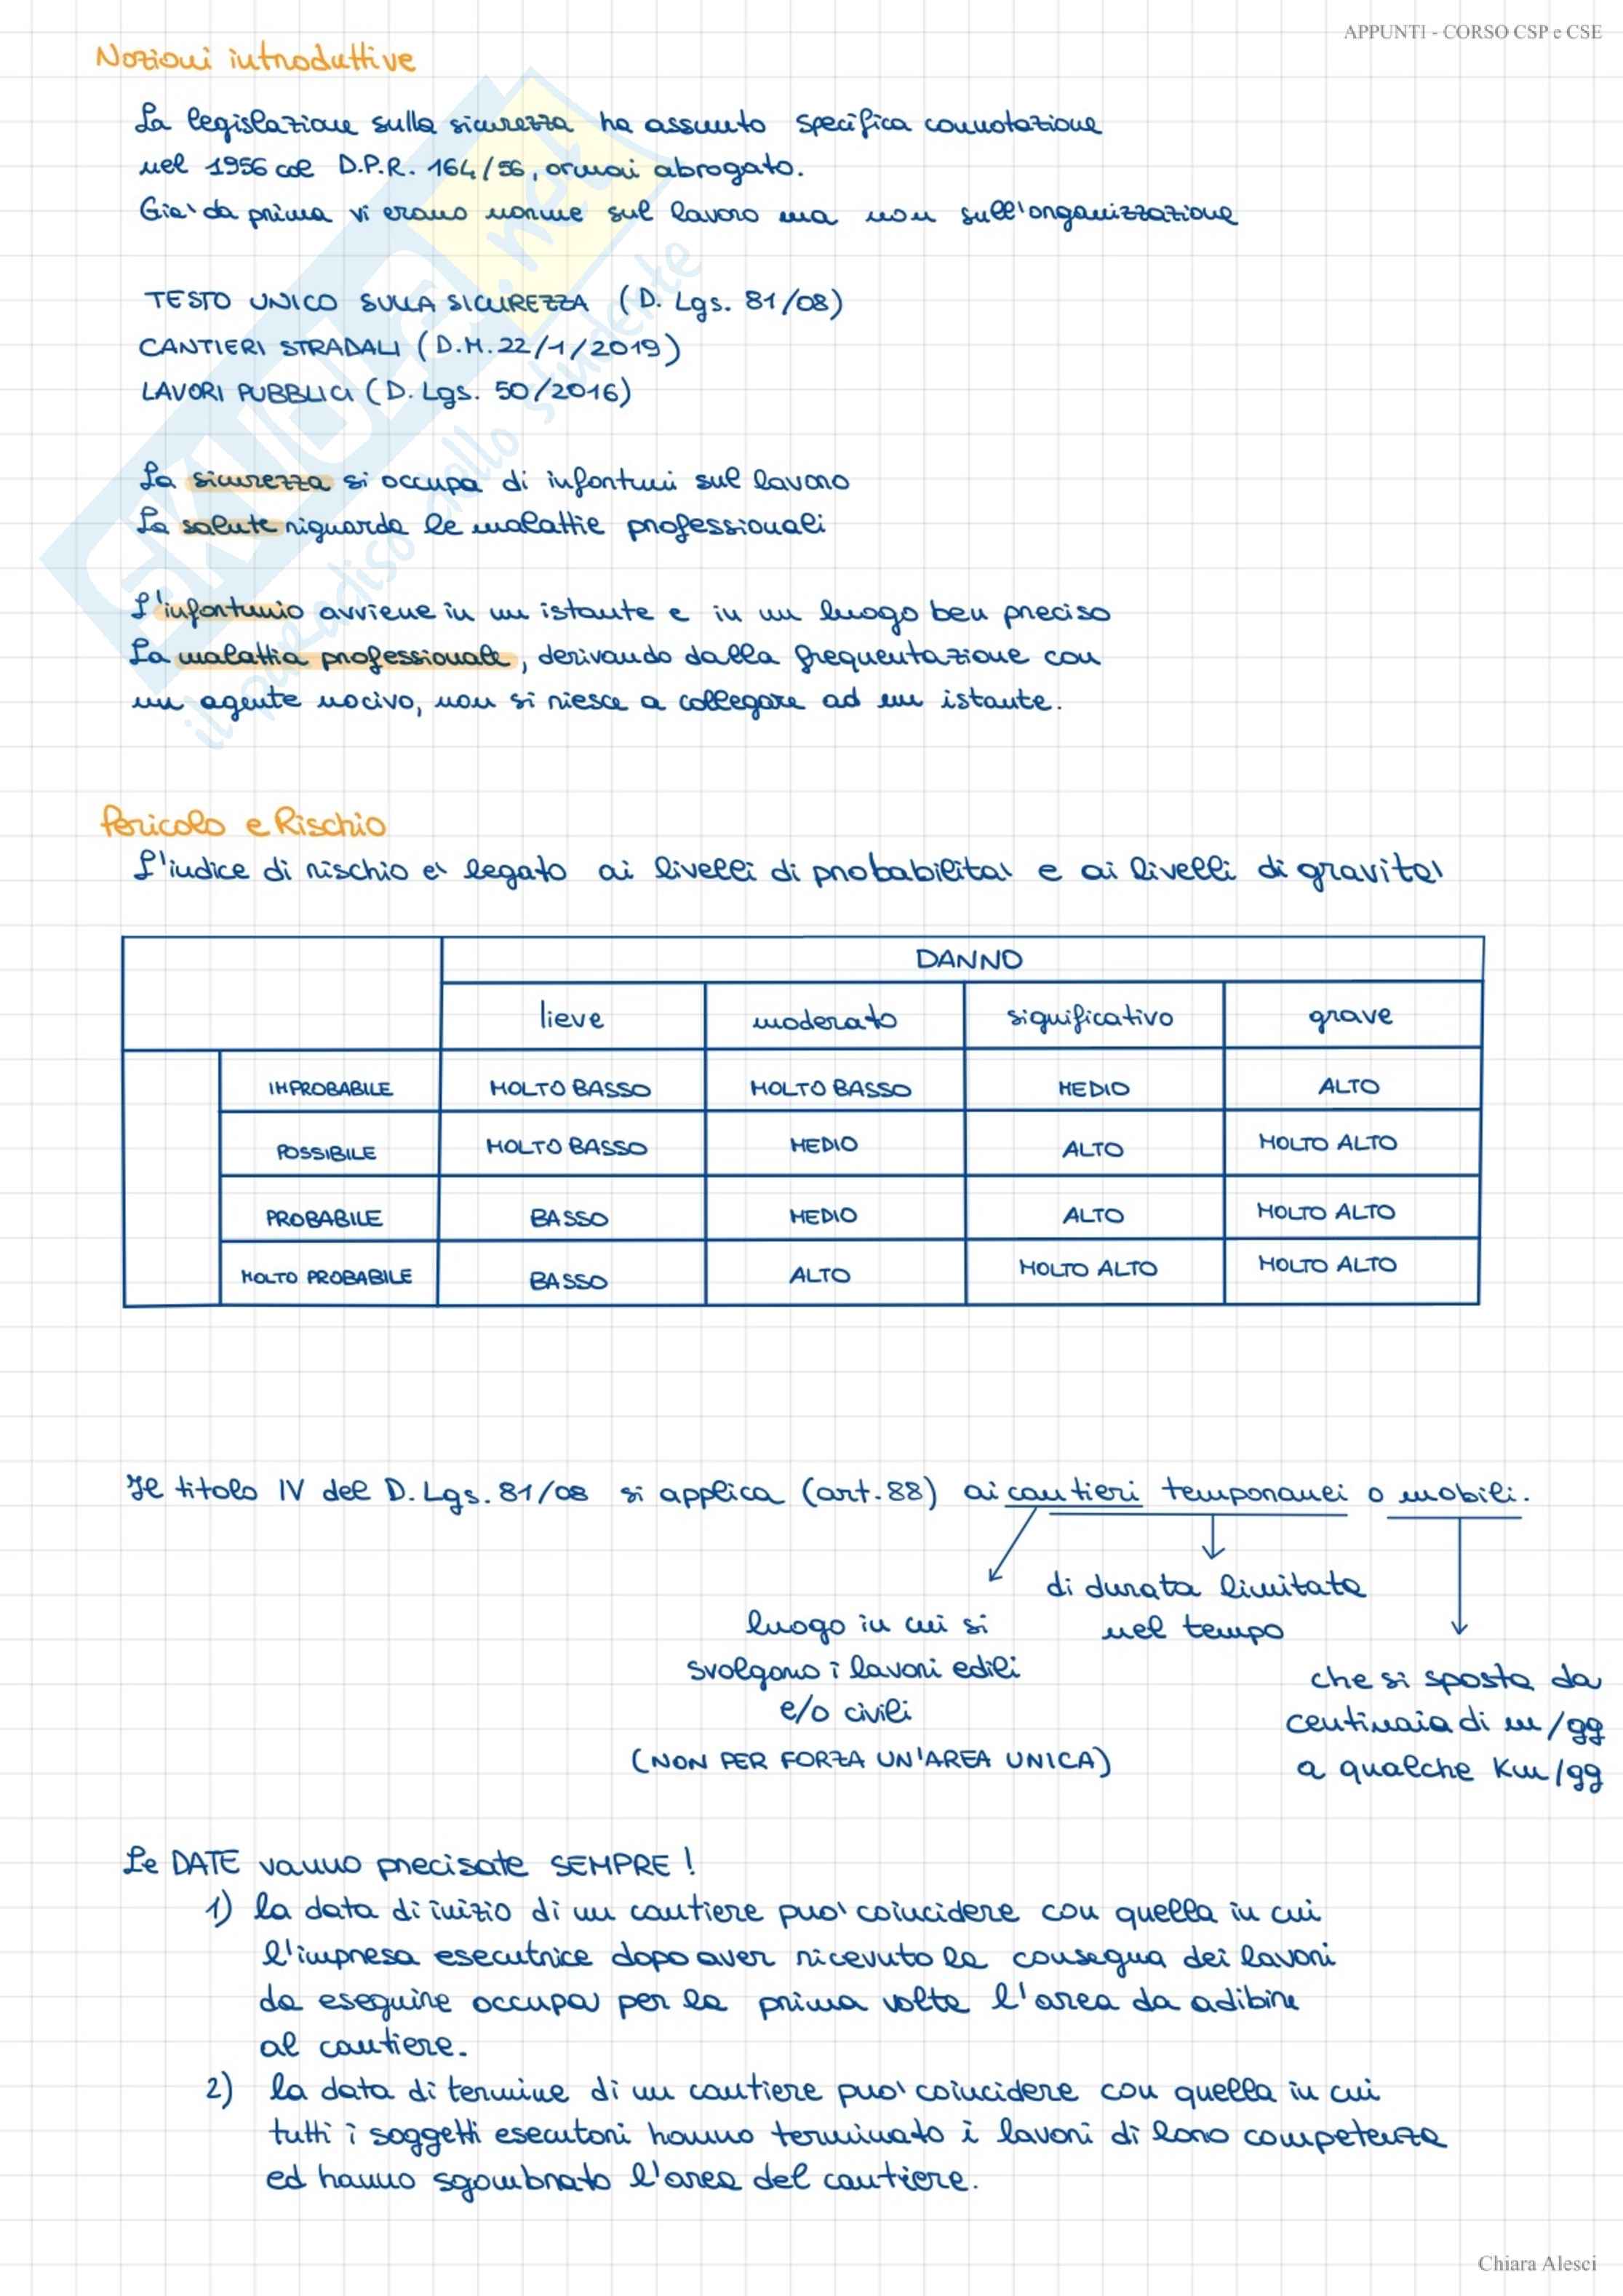 APPUNTI - CORSO CSP e CSE
Nozioni introduttive
La legislazione sulla sicurezza ha assunto specifica connotazione
nel 1956 col D.P.R. 164/56, ormai abrogato.
Gia' da prima vi erano norme sul lavoro ma non sull'organizzazione
TESTO UNICO SULLA SICUREZZA (D. Lgs. 81/08)
CANTIERI STRADALI (D.M. 22/1/2019)
LAVORI PUBBLICI (D. Lgs. 50/2016)
La sicurezza si occupa di infortuni sul lavoro
La salute riguarda le malattie professionali
L'infortunio avviene in un istante e in un luogo ben preciso
La malattia professionale, derivando dalla frequentazione con
un agente nocivo, non si riesce a collegare ad un istante.
SKUOLA.net
il paradiso dello studente
Pericolo e Rischio
L'indice di rischio e' legato ai livelli di probabilita' e ai livelli di gravita'
DANNO
lieve moderato significativo grave
IMPROBABILE MOLTO BASSO MOLTO BASSO MEDIO ALTO
POSSIBILE MOLTO BASSO MEDIO ALTO MOLTO ALTO
PROBABILE BASSO MEDIO ALTO MOLTO ALTO
MOLTO PROBABILE BASSO ALTO MOLTO ALTO MOLTO ALTO
Il titolo IV del D. Lgs. 81/08 si applica (art. 88) ai cantieri temporanei o mobili.
luogo in cui si
svolgono i lavori edili
e/o civili
(NON PER FORZA UN'AREA UNICA)
di durata limitata
nel tempo
che si sposta da
centinaia di m/gg
a qualche Km/gg
Le DATE vanno precisate SEMPRE!
1) la data di inizio di un cantiere puo' coincidere con quella in cui
l'impresa esecutrice dopo aver ricevuto la consegna dei lavori
da eseguire occupa per la prima volta l'area da adibire
al cantiere.
2) la data di termine di un cantiere puo' coincidere con quella in cui
tutti i soggetti esecutori hanno terminato i lavori di loro competenza
ed hanno sgombrato l'area del cantiere.
Chiara Alesci